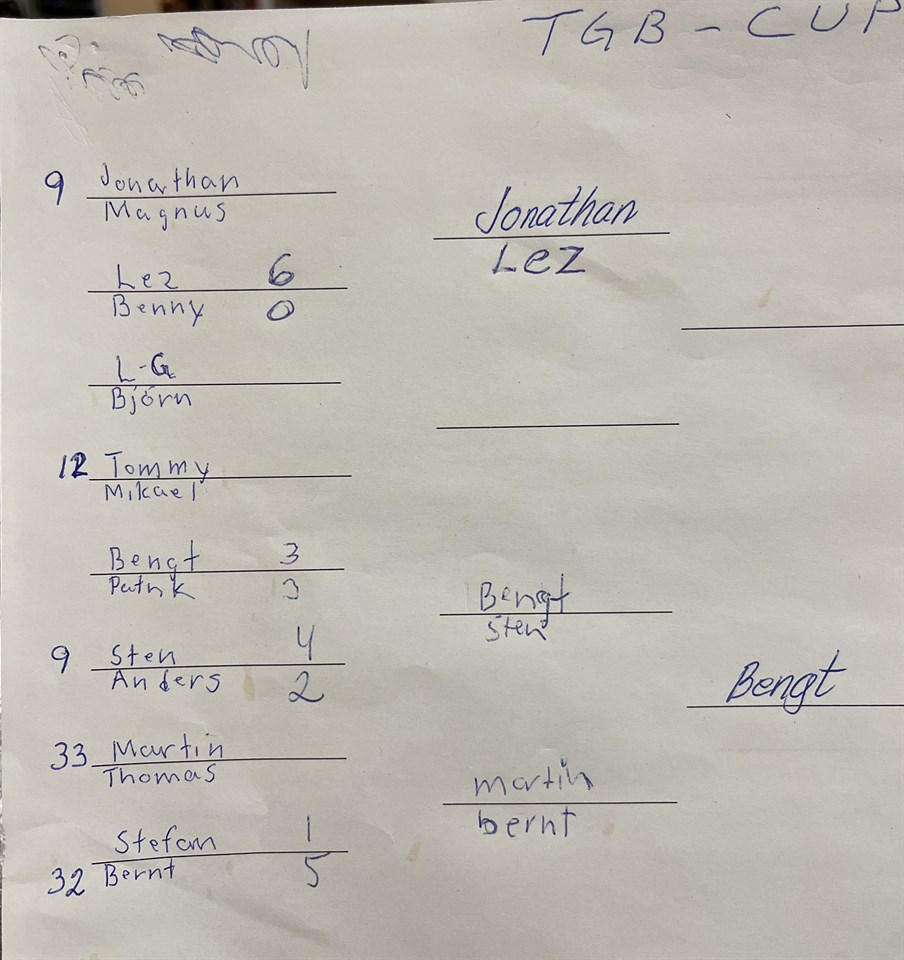 TGB - CUP
9 Jonathan
Magnus
Jonathan
Lez
Lez 6
Benny 0
L-G
Björn
12 Tommy
Mikael
Bengt 3
Patrik 3
Bengt
Sten
9 Sten 4
Anders 2
Bengt
33 Martin
Thomas
martin
bernt
Stefan 1
32 Bernt 5